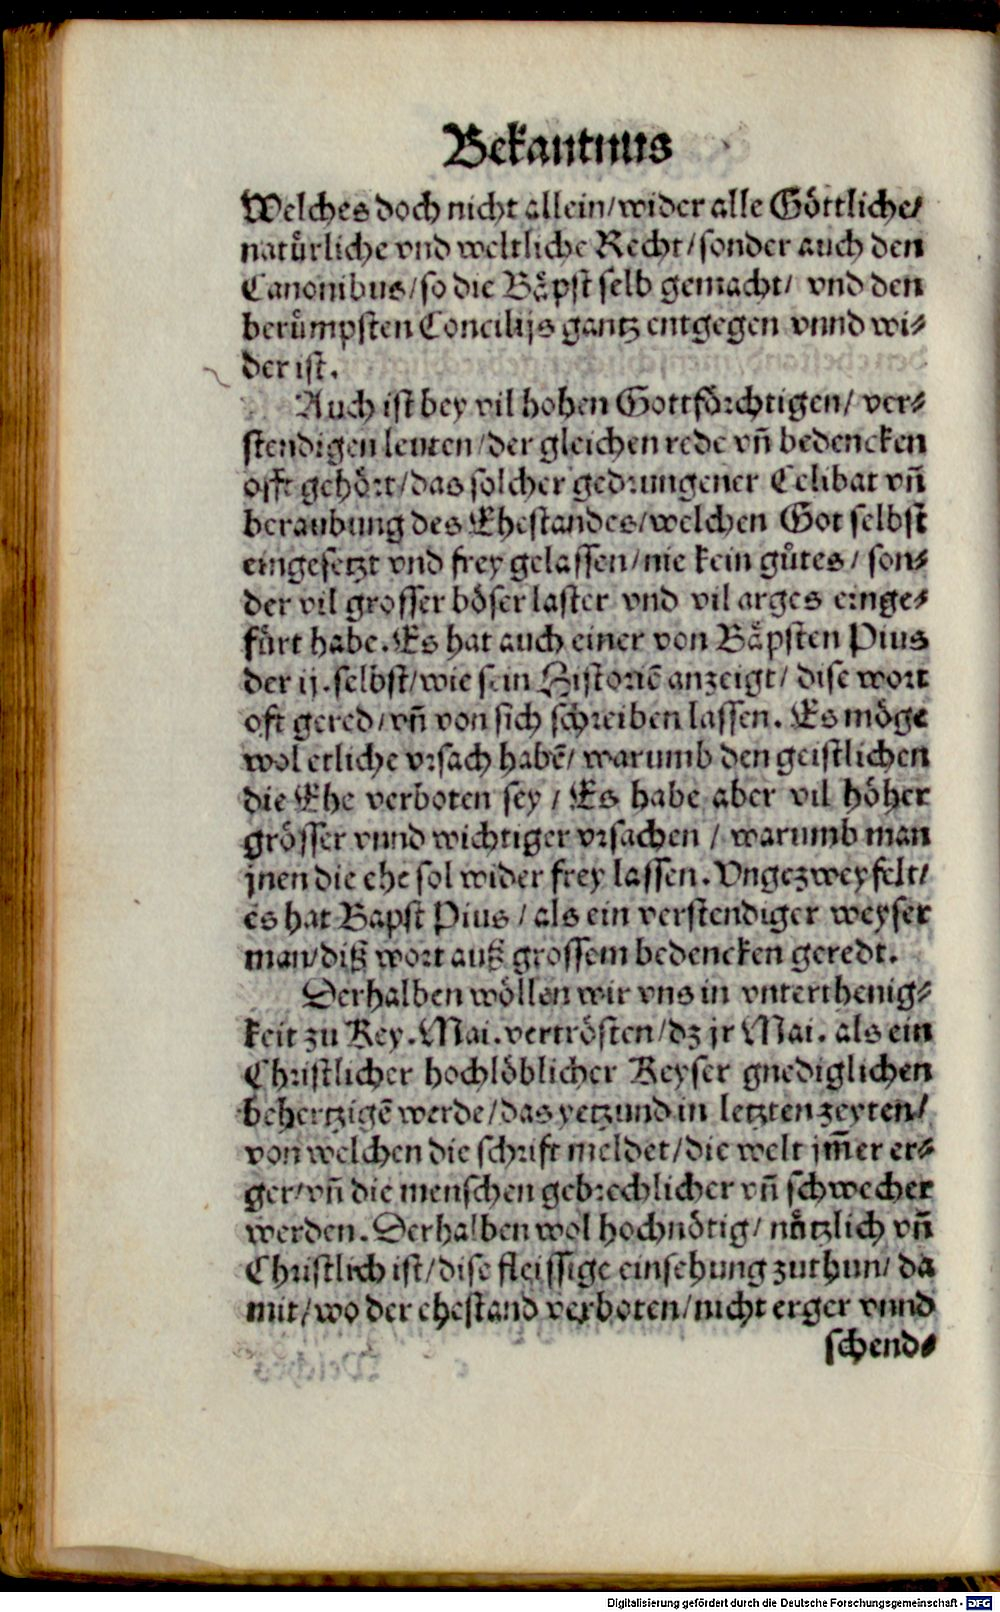 Bekantnus
Welches doch nicht allein/wider alle Göttliche/
natürliche vnd weltliche Recht/sonder auch den
Canonibus/so die Bäpst selb gemacht/ vnd den
berümpsten Concilijs gantz entgegen vnnd wi-
der ist.
Auch ist bey vil hohen Gottförchtigen/ ver-
stendigen leuten/der gleichen rede vñ bedencken
offt gehört/das solcher gedrungener Celibat vñ
beraubung des Ehestandes/welchen Got selbst
eingesetzt vnd frey gelassen/nie kein gůtes/ son-
der vil grosser böser laster vnd vil arges einge-
fürt habe. Es hat auch einer von Bäpsten Pius
der ij. selbst/wie sein Historiē anzeigt/ dise wort
oft gered/vñ von sich schreiben lassen. Es möge
wol etliche vrsach habē/ warumb den geistlichen
die Ehe verboten sey / Es habe aber vil höher
grösser vnnd wichtiger vrsachen / warumb man
jnen die ehe sol wider frey lassen. Vngezweyfelt/
es hat Bapst Pius / als ein verstendiger weyser
man/diß wort auß grossem bedencken geredt.
Derhalben wöllen wir vns in vnterthenig-
keit zu Key. Mai. vertrösten/dz jr Mai. als ein
Christlicher hochlöblicher Keyser gnediglichen
behertzigē werde/das yetzund in letzten zeyten/
von welchen die schrift meldet/die welt jm̄er er-
ger/vñ die menschen gebrechlicher vñ schwecher
werden. Derhalben wol hochnötig/ nützlich vñ
Christlich ist/dise fleissige einsehung zuthun/ da
mit/wo der ehestand verboten/nicht erger vnnd
schend-
Digitalisierung gefördert durch die Deutsche Forschungsgemeinschaft - DFG